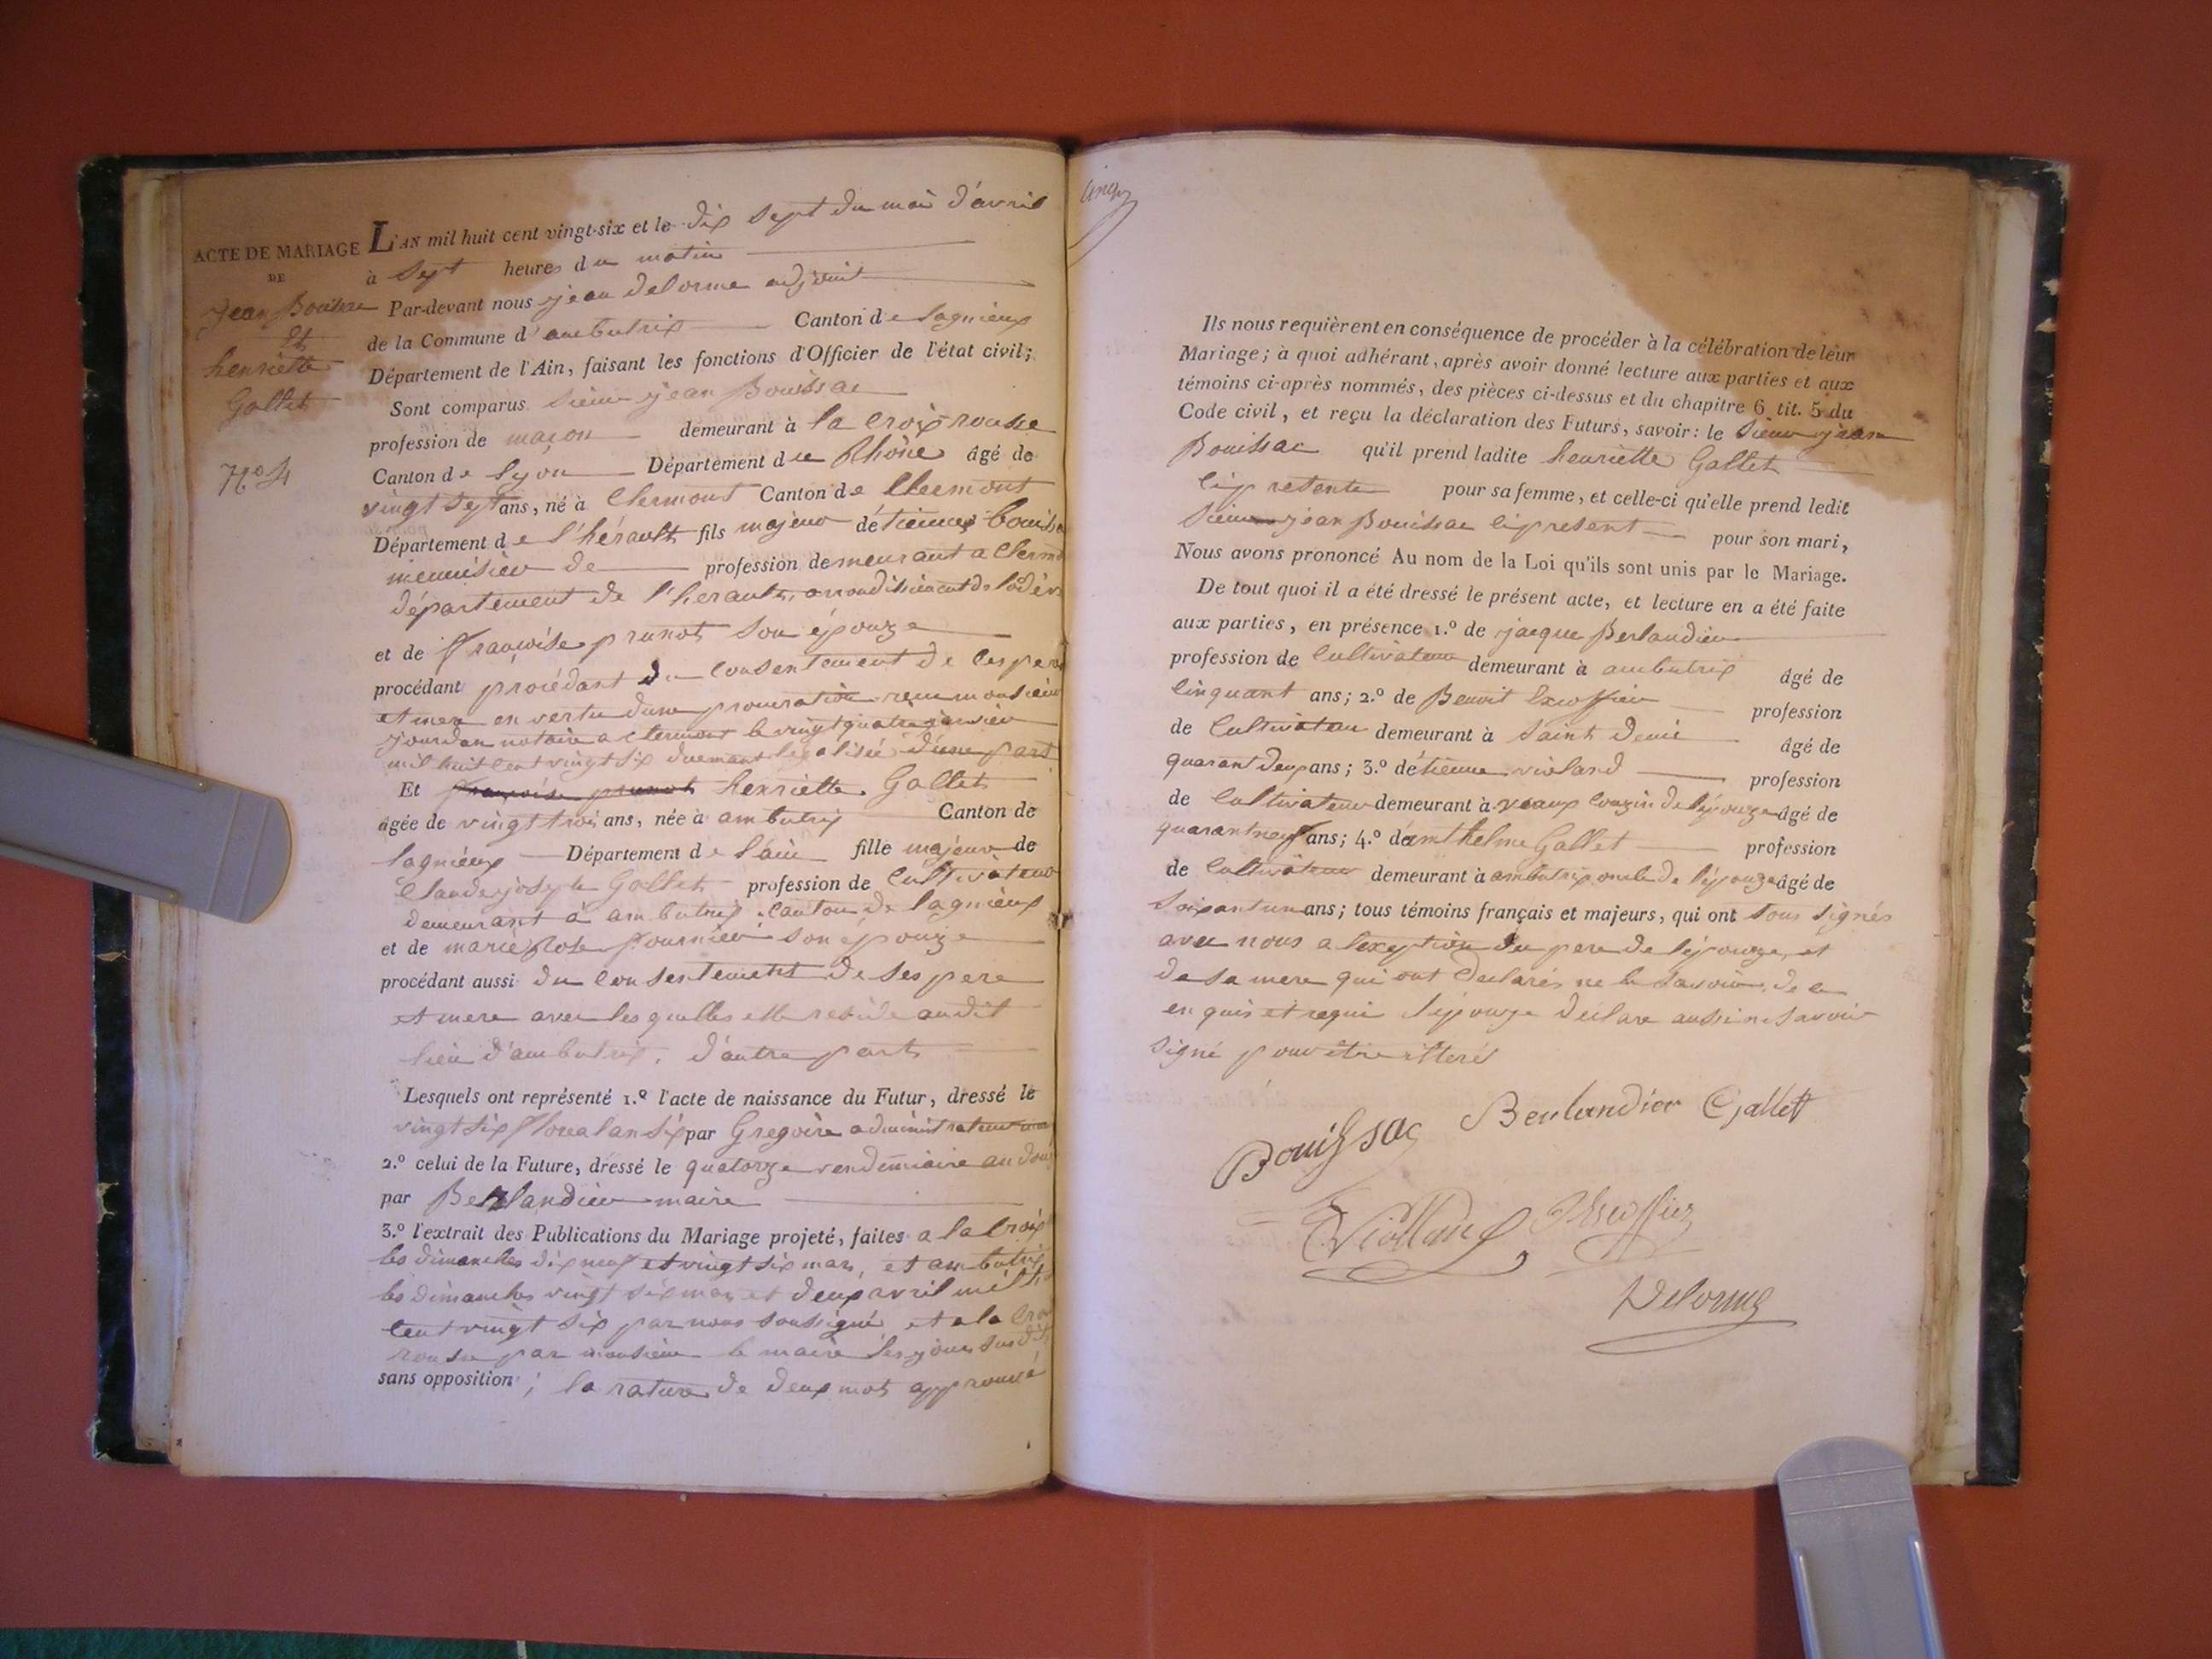 ACTE DE MARIAGE
DE
Jean Bouissac
Et
henriette
Gallet
N.° 4
L'AN mil huit cent vingt-six et le dix sept du moi d'avril
à sept heures du matin
Par-devant nous jean delorme adjoint
de la Commune d'ambutrix Canton de lagnieux
Département de l'Ain, faisant les fonctions d'Officier de l'état civil;
Sont comparus sieur jean Bouissac
profession de maçon demeurant à la croix rousse
Canton de lyon Département du Rhône âgé de
vingt sept ans, né à Clermont Canton de Clermont
Département de l'hérault fils majeur détienne bouissa
menuisier de profession demeurant a Clermo
département de l'herault, arrondissement de lodève
et de françoise prunot son épouze
procédant procédant du consentement de ces pere
et mere en vertu dune procuration reçue monsieur
jourdan notaire a clermont le vingt quatre janvier
mil huit cent vingt six duemant legalisée d'une part
Et françoise prunot henriette Gallet
âgée de vingt trois ans, née à ambutrix Canton de
lagnieux Département de l'ain fille majeur de
Claude joseph Gallet profession de Cultivateur
demeurant à ambutrix canton de lagnieux
et de marie Rose fournier son épouze
procédant aussi du consentement de ses pere
et mere avec les quelles elle reside audit
lieu d'ambutrix. d'autre part
Lesquels ont représenté 1.° l'acte de naissance du Futur, dressé le
vingt six floreal an six par Gregoire administrateur
2.° celui de la Future, dressé le quatorze vendemiaire an douz
par Berlandieu maire
3.° l'extrait des Publications du Mariage projeté, faites a la croix
les dimanches dix neuf et vingt six mars, et ambutrix
les dimanches vingt six mars et deux avril
cent vingt six par nous soussigné et a la croi
rousse par monsieur le maire les jours susdit
sans opposition; la rature de deux mots approuvé
cinq
Ils nous requièrent en conséquence de procéder à la célébration de leur
Mariage; à quoi adhérant, après avoir donné lecture aux parties et aux
témoins ci-après nommés, des pièces ci-dessus et du chapitre 6 tit. 5 du
Code civil, et reçu la déclaration des Futurs, savoir: le sieur jean
Bouissac qu'il prend ladite henriette Gallet
cip resente pour sa femme, et celle-ci qu'elle prend ledit
sieur jean Bouissac cipresent pour son mari,
Nous avons prononcé Au nom de la Loi qu'ils sont unis par le Mariage.
De tout quoi il a été dressé le présent acte, et lecture en a été faite
aux parties, en présence 1.° de jacque Berlandieu
profession de Cultivateur demeurant à ambutrix âgé de
cinquant ans; 2.° de Benoit profession
de Cultivateur demeurant à saint deni âgé de
quarant deux ans; 3.° détienne violand profession
de Cultivateur demeurant à vaux couzin de lépouze âgé de
quarant neuf ans; 4.° damthelme Gallet profession
de Cultivateur demeurant à ambutrix oncle de lépouze âgé de
soixant un ans; tous témoins français et majeurs, qui ont tous signés
avec nous a lexeption du pere de lépouze, et
de sa mere qui ont declarés ne le savoir, de ce
en quis et requi lépouze déclare aussi ne savoir
signé pour être illeré
Bouissac Berlandier Gallet
Violland
Delorme